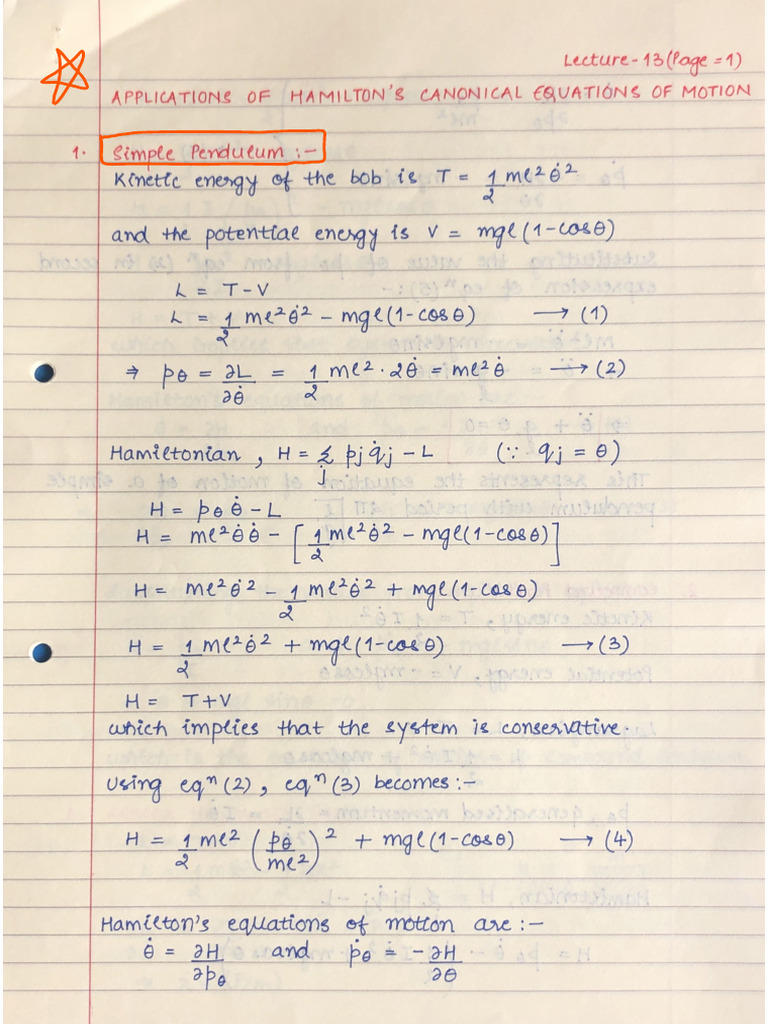 Lecture-13(Page=1)
APPLICATIONS OF HAMILTON'S CANONICAL EQUATIONS OF MOTION
1. Simple Pendulum :-
Kinetic energy of the bob is T = 1/2 ml²θ̇²
and the potential energy is V = mgl(1-cosθ)
L = T-V
L = 1/2 ml²θ̇² - mgl(1-cosθ) → (1)
⇒ pθ = ∂L/∂θ̇ = 1/2 ml²·2θ̇ = ml²θ̇ → (2)
Hamiltonian, H = Σj pjq̇j - L (∵ qj = θ)
H = pθ θ̇ - L
H = ml²θ̇θ̇ - [1/2 ml²θ̇² - mgl(1-cosθ)]
H = ml²θ̇² - 1/2 ml²θ̇² + mgl(1-cosθ)
H = 1/2 ml²θ̇² + mgl(1-cosθ) → (3)
H = T+V
which implies that the system is conservative.
Using eqⁿ(2), eqⁿ(3) becomes:-
H = 1/2 ml² (pθ/ml²)² + mgl(1-cosθ) → (4)
Hamilton's equations of motion are:-
θ̇ = ∂H/∂pθ and ṗθ = -∂H/∂θ